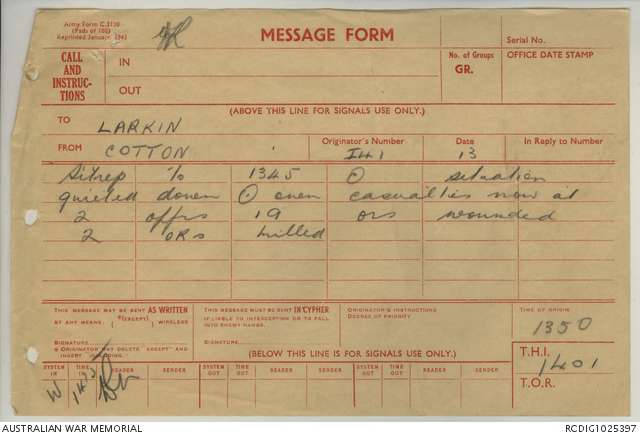 Army Form C.2136
(Pads of 100)
MESSAGE FORM
Serial No.
CALL
AND
INSTRUC-
TIONS
IN
OUT
No. of Groups
GR.
OFFICE DATE STAMP
(ABOVE THIS LINE FOR SIGNALS USE ONLY.)
TO LARKIN
FROM COTTON
Originator's Number
I41
Date
13
In Reply to Number
Sitrep 1345 ⊙ situation
quieted down ⊙ casualties now at
2 offrs 19 ors wounded
2 ORs killed
THIS MESSAGE MAY BE SENT AS WRITTEN
BY ANY MEANS (EXCEPT) WIRELESS
SIGNATURE
ORIGINATOR MAY DELETE "EXCEPT" AND
INSERT "INCLUDING."
THIS MESSAGE MUST BE SENT IN CYPHER
IF LIABLE TO INTERCEPTION OR TO FALL
INTO ENEMY HANDS.
SIGNATURE
ORIGINATOR'S INSTRUCTIONS
DEGREE OF PRIORITY
TIME OF ORIGIN
1350
(BELOW THIS LINE IS FOR SIGNALS USE ONLY.)
T.H.I.
1401
T.O.R.
SYSTEM IN
TIME IN
READER
SENDER
SYSTEM OUT
TIME OUT
READER
SENDER
SYSTEM OUT
TIME OUT
READER
SENDER
W
AUSTRALIAN WAR MEMORIAL
RCDIG1025397